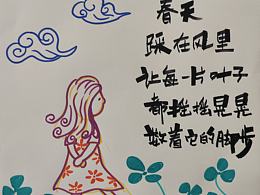 春天
踩在风里
让每一片叶子
都摇摇晃晃
散着它的脚步